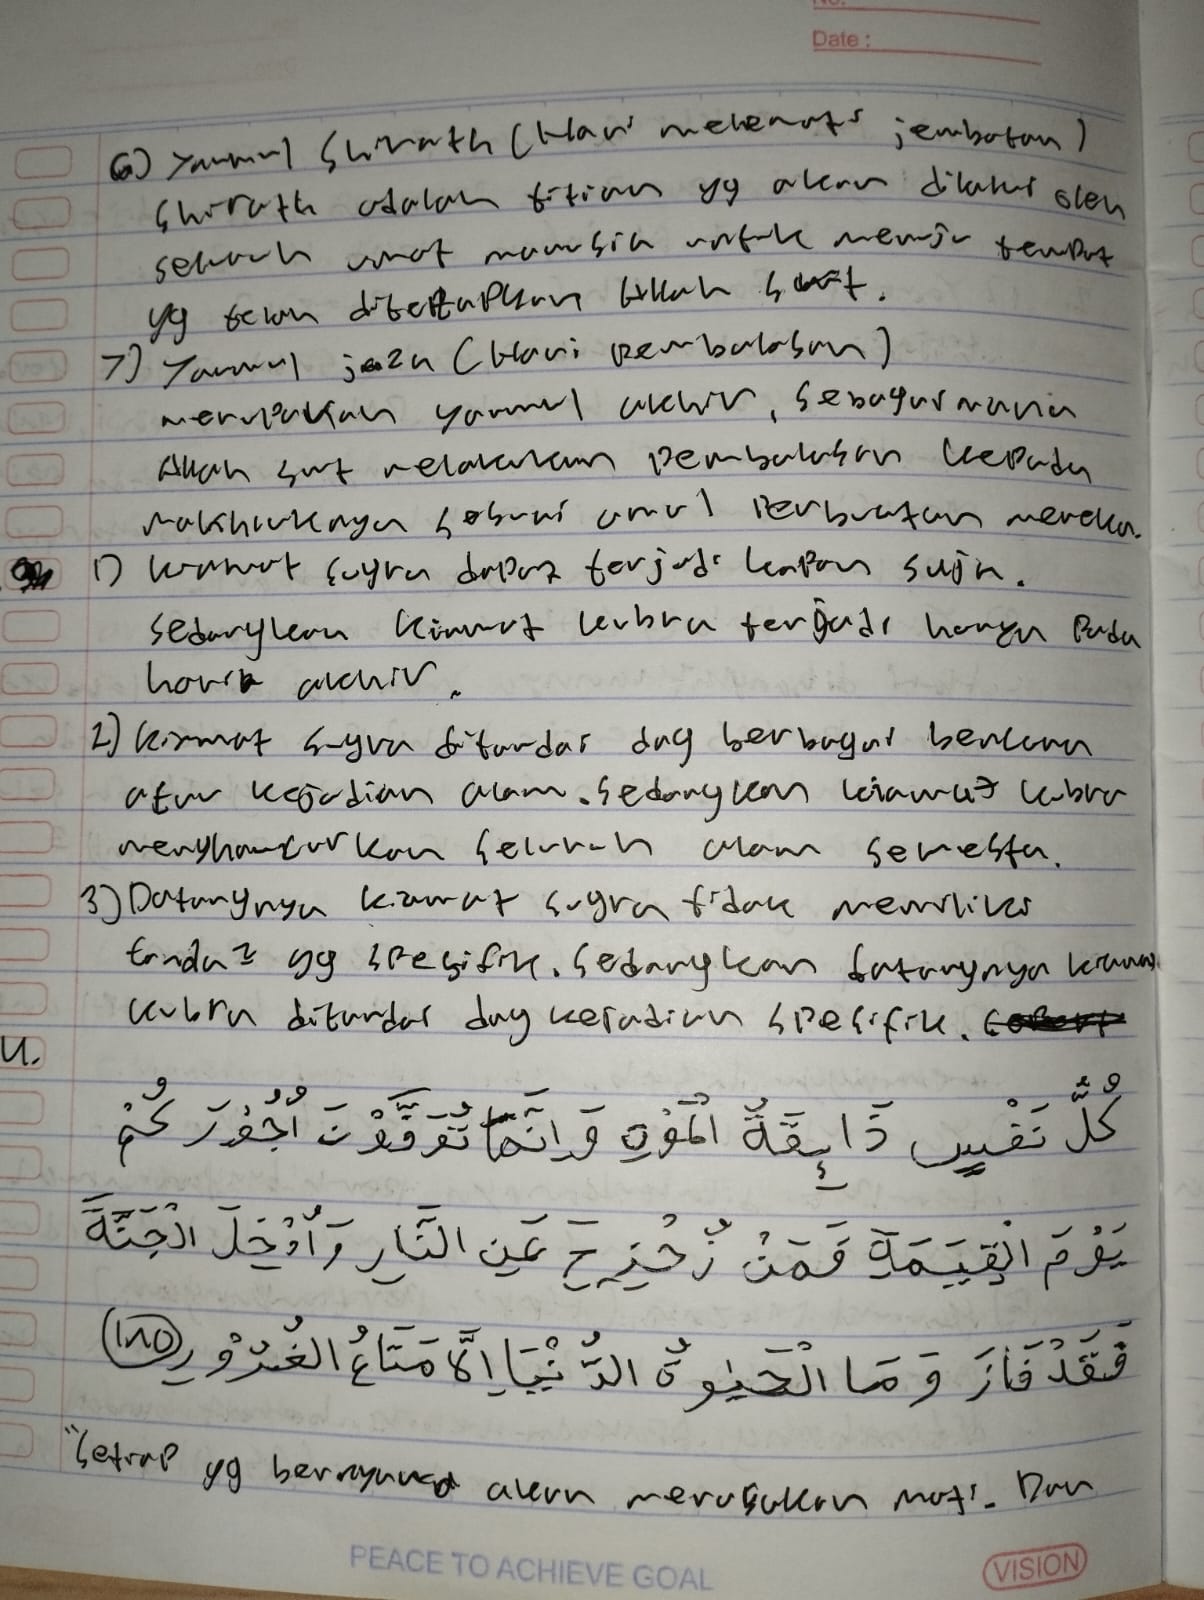 No.
Date :
6) Yaumul Shirath (Hari melewati jembatan)
Shirath adalah titian yg akan dilalui oleh
seluruh umat manusia untuk menuju tempat
yg telah ditetapkan Allah swt.
7) Yaumul jaza (Hari pembalasan)
merupakan yaumul akhir, sebagaimana
Allah swt melakukan pembalasan kepada
makhluknya sesuai amal perbuatan mereka.
1) kiamat sugra dapat terjadi kapan saja.
Sedangkan kiamat kubra terjadi hanya pada
hari akhir.
2) kiamat sugra ditandai dgg berbagai bencana
atau kejadian alam. Sedangkan kiamat kubra
menghancurkan seluruh alam semesta.
3) Datangnya kiamat sugra tidak memiliki
tanda² yg spesifik. Sedangkan datangnya kiamat
kubra ditandai dgg kejadian spesifik.
4.
كُلُّ نَفْسٍ ذَايِٕقَةُ الْمَوْتِ وَاِنَّمَا تُوَفَّوْنَ اُجُوْرَكُمْ
يَوْمَ الْقِيٰمَةِ فَمَنْ زُحْزِحَ عَنِ النَّارِ وَاُدْخِلَ الْجَنَّةَ
فَقَدْ فَازَ وَمَا الْحَيٰوةُ الدُّنْيَا اِلَّا مَتَاعُ الْغُرُوْرِ (١٨٥)
"Setiap yg bernyawa akan merasakan mati. Dan
PEACE TO ACHIEVE GOAL
VISION